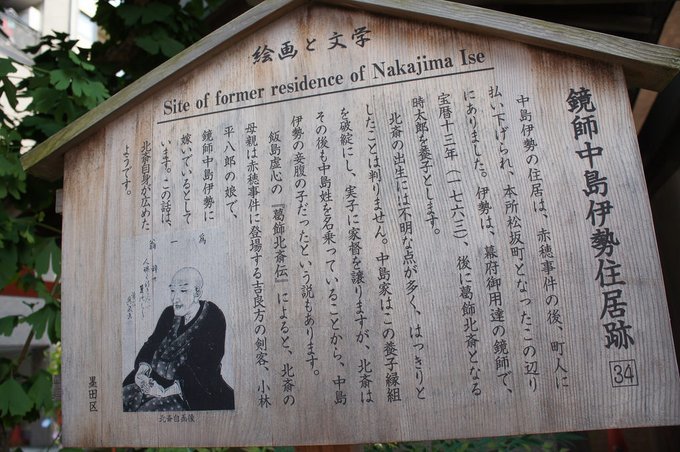 絵画と文学
Site of former residence of Nakajima Ise
鏡師中島伊勢住居跡
34
中島伊勢の住居は、赤穂事件の後、町人に
払い下げられ、本所松坂町となったこの辺り
にありました。伊勢は、幕府御用達の鏡師で、
宝暦十三年(一七六三)、後に葛飾北斎となる
時太郎を養子とします。
北斎の出生には不明な点が多く、はっきりと
したことは判りません。中島家はこの養子縁組
を破綻にし、実子に家督を譲りますが、北斎は
その後も中島姓を名乗っていることから、中島
伊勢の妾腹の子だったという説もあります。
飯島虚心の『葛飾北斎伝』によると、北斎の
母親は赤穂事件に登場する吉良方の剣客、小林
平八郎の娘で、
鏡師中島伊勢に
嫁いでいるとして
います。この話は、
北斎自身が広めた
ようです。
為一翁
北斎自画像
墨田区